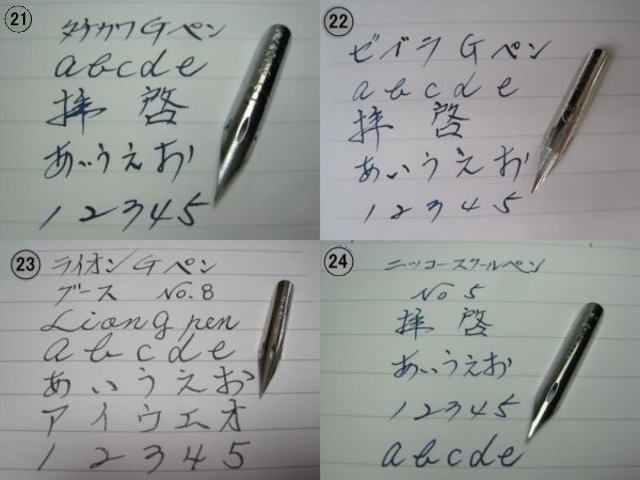 21
タチカワGペン
abcde
拝啓
あいうえお
12345
22
ゼブラGペン
abcde
拝啓
あいうえお
12345
23
ライオンGペン
ブース No.8
Lion g pen
abcde
あいうえお
アイウエオ
12345
24
ニッコースクールペン
No 5
拝啓
あいうえお
12345
abcde